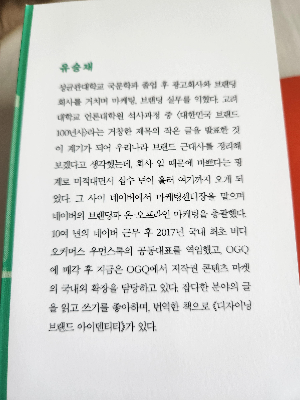 유승재
성균관대학교 국문학과 졸업 후 광고회사와 브랜딩
회사를 거치며 마케팅, 브랜딩 실무를 익혔다. 고려
대학교 언론대학원 석사과정 중 〈대한민국 브랜드
100년사〉라는 거창한 제목의 작은 글을 발표한 것
이 계기가 되어 우리나라 브랜드 근대사를 정리해
보겠다고 생각했는데, 회사 일 때문에 바쁘다는 핑
계로 미적대면서 십수 년이 흘러 여기까지 오게 되
었다. 그 사이 네이버에서 마케팅센터장을 맡으며
네이버의 브랜딩과 온·오프라인 마케팅을 총괄했다.
10여 년의 네이버 근무 후 2017년 국내 최초 비디
오커머스 우먼스톡의 공동대표를 역임했고, OGQ
에 매각 후 지금은 OGQ에서 저작권 콘텐츠 마켓
의 국내외 확장을 담당하고 있다. 잡다한 분야의 글
을 읽고 쓰기를 좋아하며, 번역한 책으로 《디자이닝
브랜드 아이덴티티》가 있다.